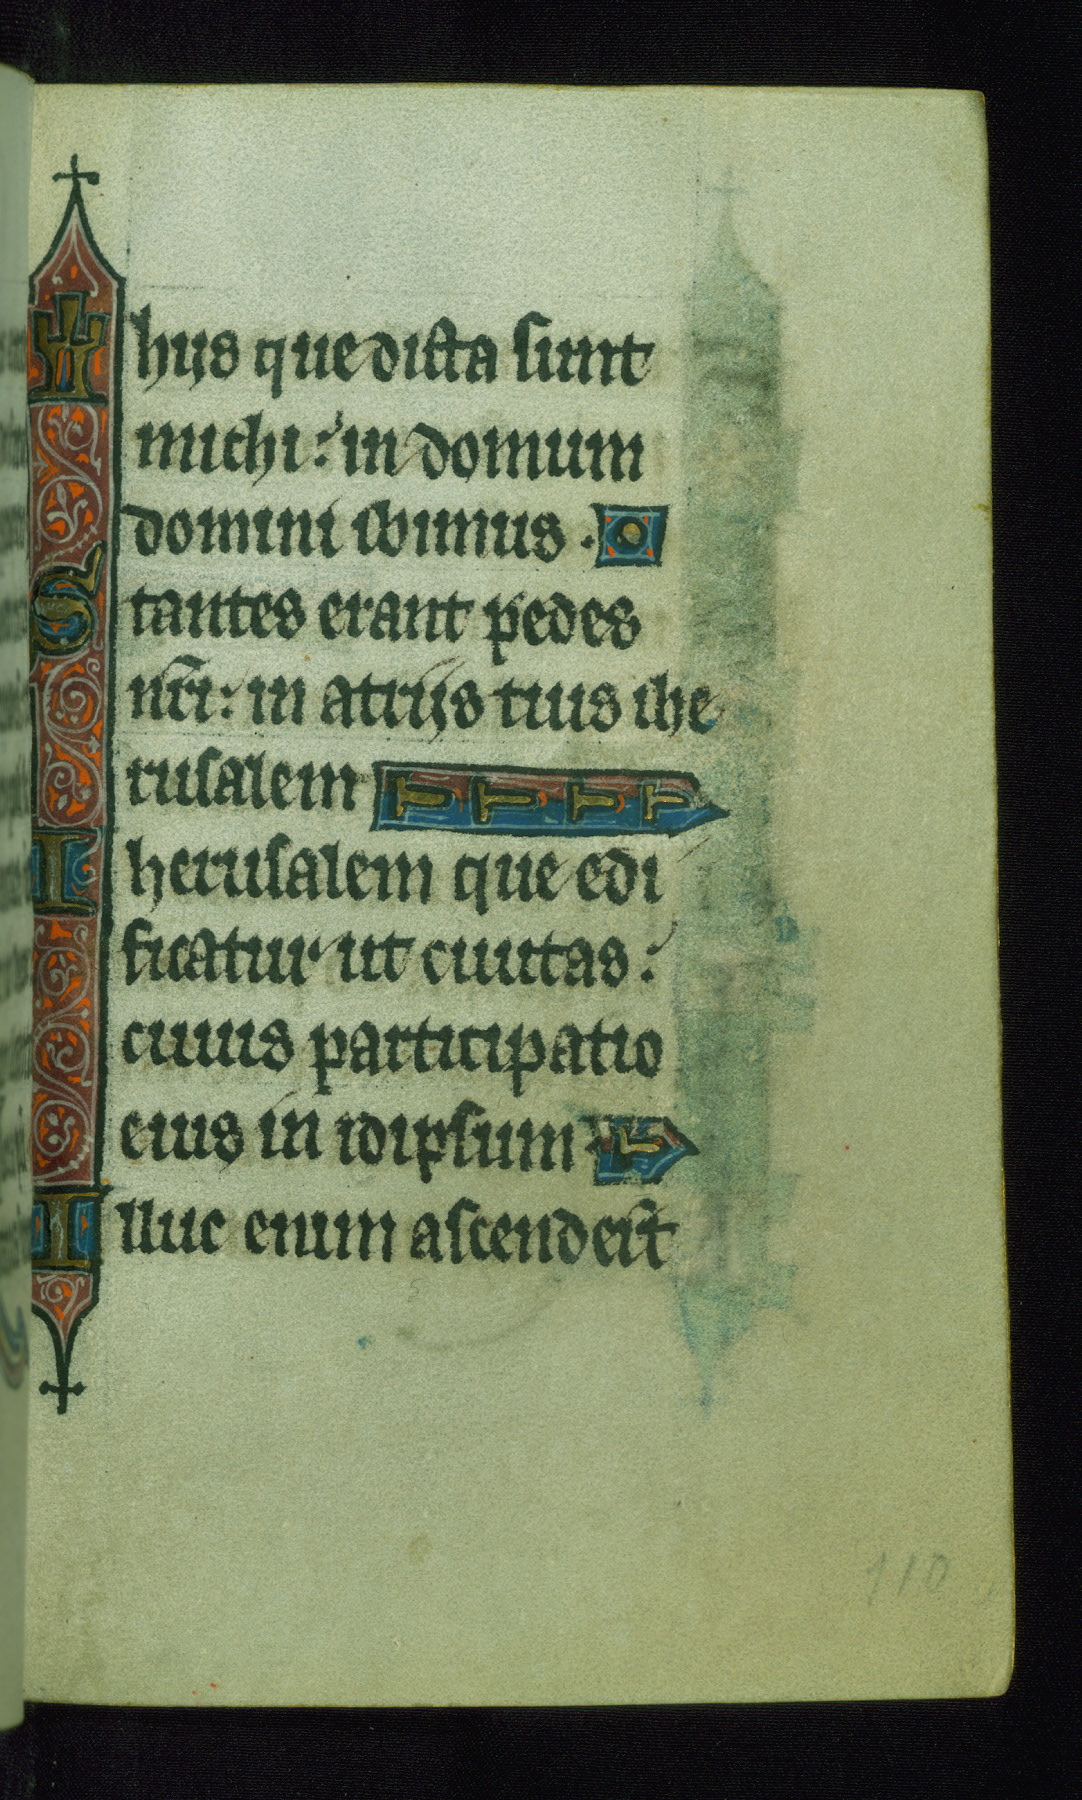 hijs que dicta sunt
michi: in domum
domini ibimus.
Stantes erant pedes
nr̃i: in atrijs tuis ihe
rusalem
Iherusalem que edi
ficatur ut ciuitas:
cuuis participatio
eius in idipsum
Illuc enim ascender̃t
110